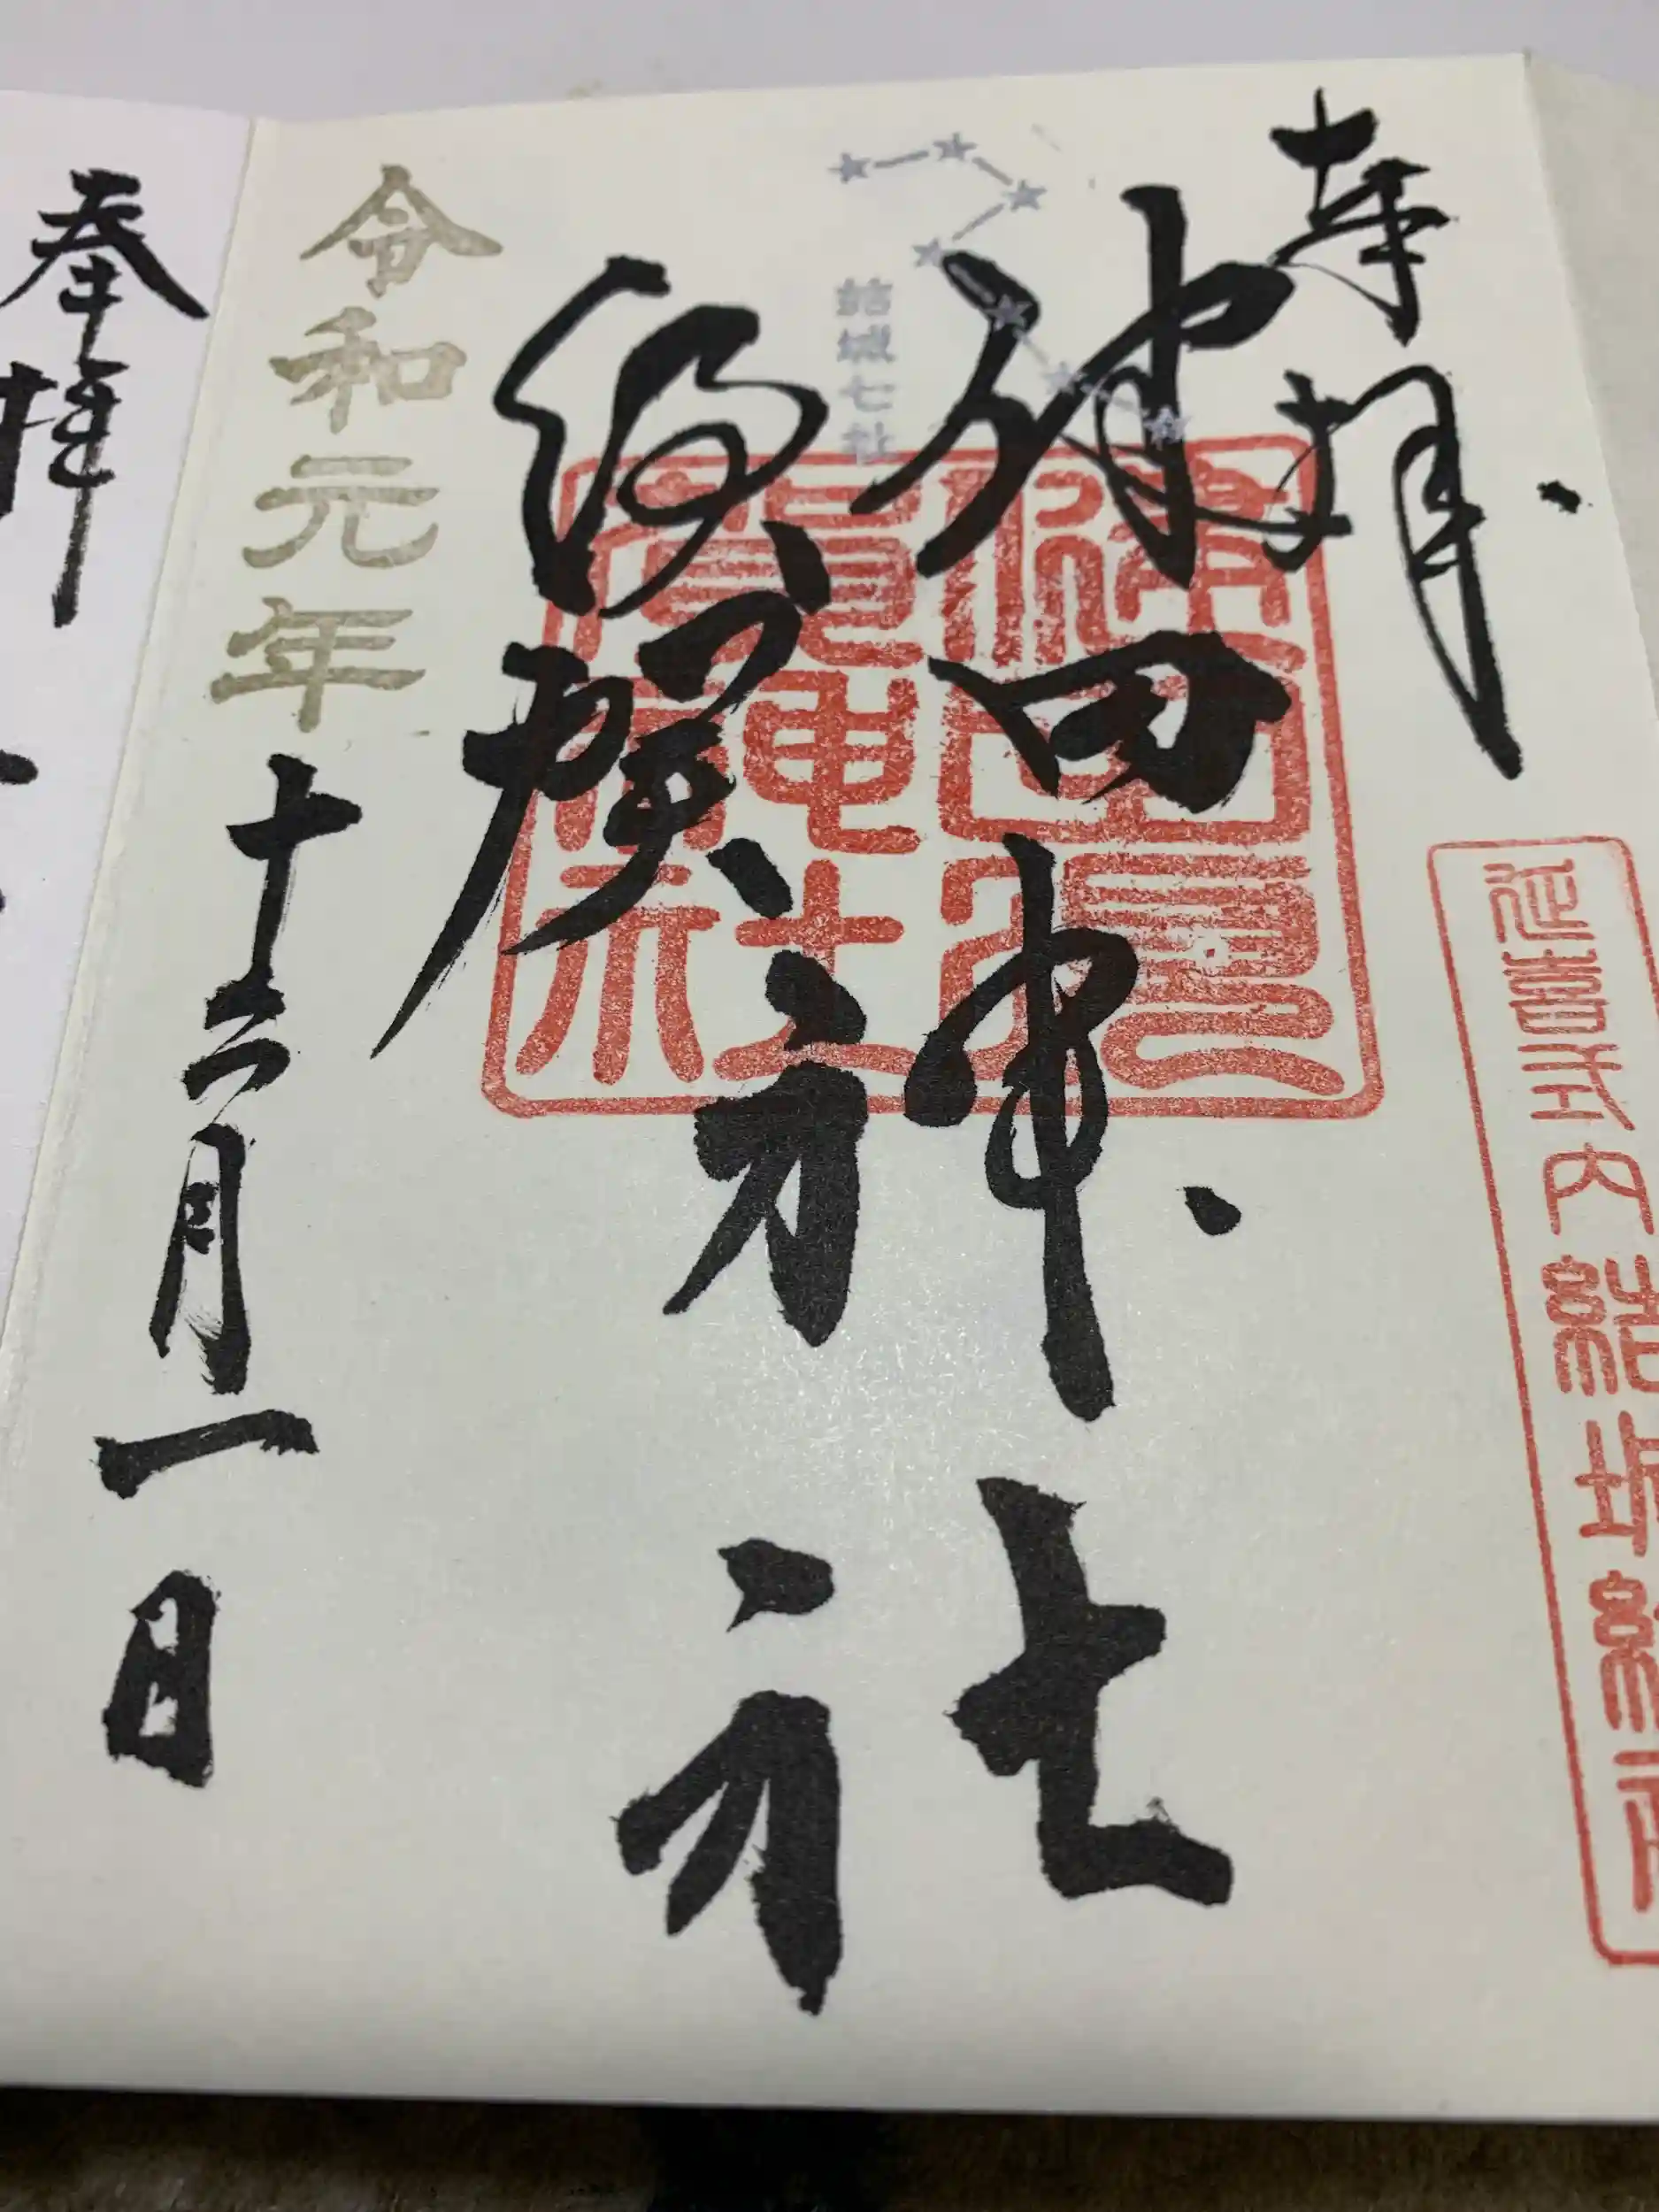 奉拝
延喜式内結城
結城七社
健田
須賀
神社
健田須
賀神社
令和元年
十二月一日
奉拝